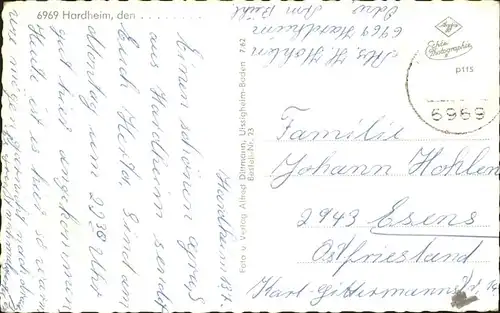 6969 Hardheim, den . . . . . . . .
Hardheim
Einen schönen Gruß
aus Hardheim sendet
Euch Herta. Sind am
Montag um 22 30 Uhr
gut hier angekommen
Heute ist es hier so warm
Foto u. Verlag Alfred Dittmann, Uissigheim-Baden 7.62
Bestell-Nr. 23
Abs. H. Hohlen
6969 Hardheim
Am Bühl
Agfa
Echte
Photographie
P115
6969
Familie
Johann Hohlen
2943 Esens
Ostfriesland
Karl-Gittermannstr. 14